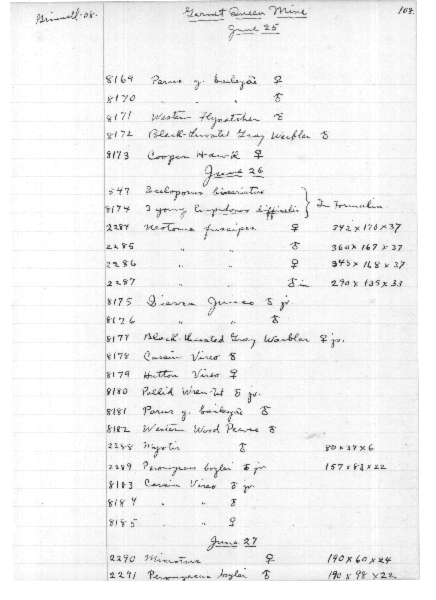 Grinnell-08. Garnet Queen Mine 108.
June 25
8169 Parus g. baileyae ♀
8170 " " ♂
8171 Western Flycatcher ♂
8172 Black-throated Gray Warbler ♂
8173 Cooper Hawk ♀
June 26
547 Sceloporus biseriatus } In Formalin.
8174 2 young Empidonax difficilis
2284 Neotoma fuscipes ♀ 342 x 170 x 37
2285 " " ♂ 360 x 167 x 37
2286 " " ♀ 345 x 168 x 37
2287 " " ♂ im 290 x 135 x 33
8175 Sierra Junco ♂ jv.
8176 " " ♂
8177 Black-throated Gray Warbler ♀ jv.
8178 Cassin Vireo ♂
8179 Hutton Vireo ♀
8180 Pallid Wren-tit ♂ jv.
8181 Parus g. baileyae ♂
8182 Western Wood Pewee ♂
2288 Myotis ♂ 80 x 34 x 6
2289 Peromyscus boylei ♂ jv 157 x 83 x 22
8183 Cassin Vireo ♂ jv.
8184 " " ♂
8185 " " ♀
June 27
2290 Microtus ♀ 190 x 60 x 24
2291 Peromyscus boylei ♂ 190 x 98 x 22